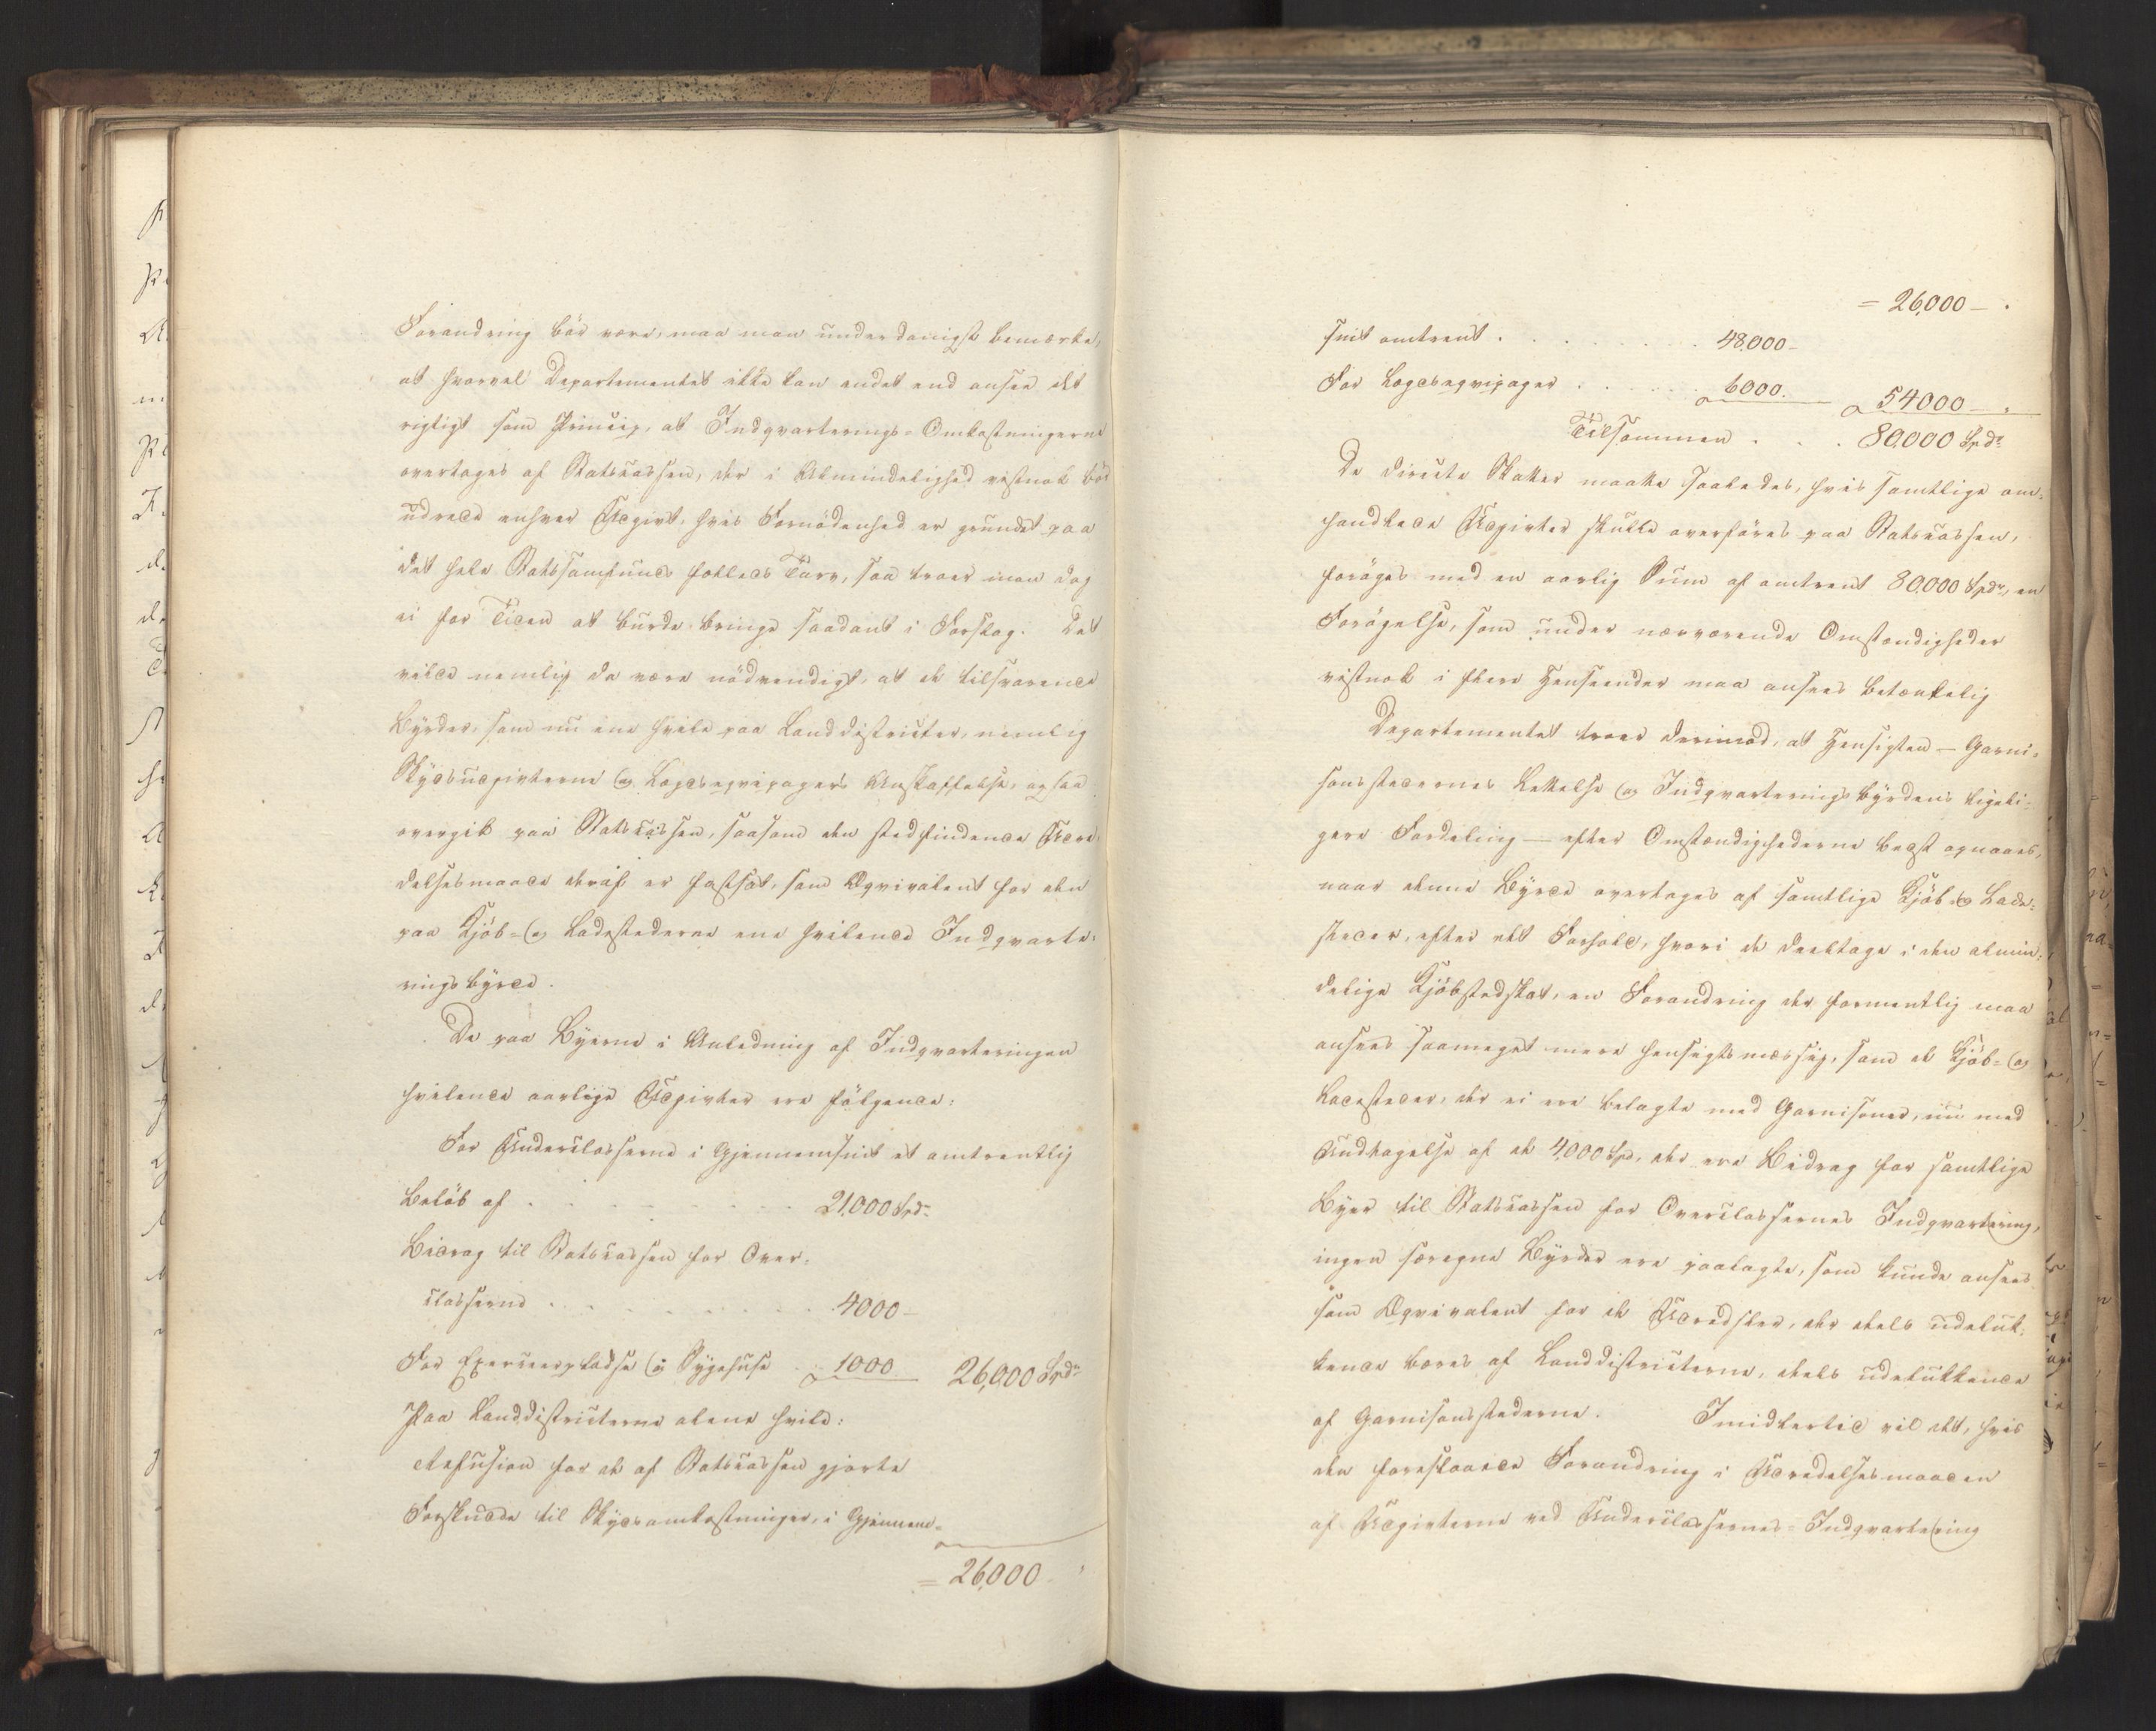 Forandring bör være, maa man underdanigst bemærke,
at hvorvel Departementet ikke kan andet end ansee det
rigtigt som Princip, at Indqvarterings-Omkostningerne
overtages af Statscassen, der i Almindelighed vistnok bör
udrede enhver Udgivt, hvis Fornödenhed er grundet paa
det hele Statssamfunds fælleds Tarv, saa troer man dog
ei for Tiden at burde bringe saadant i Forslag. Det
vilde nemlig da være nödvendigt, at de tilsvarende
Byrder, som nu ene hvile paa Landdistricter, nemlig
Skydsudgivterne og Logesreqvipagers Anskaffelse, ogsaa
overgik paa Statscassen, saasom den stedfindende Udre-
delsesmaade deraf er fastsat, som Æqvivalent for den
paa Kjöb- og Ladestederne ene hvilende Indqvarte-
ringsbyrde.
De paa Byerne i Anledning af Indqvarteringen
hvilende aarlige Udgivter ere fölgende:
For Underclasserne i Gjennemsnit et omtrentlig
Belöb af . . . . . . 21,000 Spd.
Bidrag til Statscassen for Over-
classerne . . . . . . 4000 -
For Exerceerpladse og Sygehuse . 1000. 26,000 Spdr
Paa Landdistricterne alene hvile:
Refusion for de af Statscassen gjorte
Forskudde til Skydsomkostninger, i Gjennem-
= 26,000.
= 26,000 - .
snit omtrent . . . . . . 48,000 -
For Logesreqvipager . . . . . 6000. 54000 - .
Tilsammen . . . 80,000 Spdr
De directe Skatter maatte saaledes, hvis samtlige om-
handlede Udgivter skulle overföres paa Statscassen,
foröges med en aarlig Sum af omtrent 80,000 Spdr, en
Forögelse, som under nærværende Omstændigheder
vistnok i flere Henseender maa ansees betænkelig
Departementet troer derimod, at Hensigten — Garni-
sonsstedernes Lettelse og Indqvarteringsbyrdens ligeli-
gere Fordeling — efter Omstændighederne bedst opnaaes,
naar denne Byrde overtages af samtlige Kjöb- og Lade-
steder, efter det Forhold, hvori de deeltage i den almin-
delige Kjöbstedskat, en Forandring der formentlig maa
ansees saameget mere hensigtsmæssig, som de Kjöb- og
Ladesteder, der ei ere belagte med Garnisoner, nu med
Undtagelse af de 4,000 Spd, der ere Bidrag for samtlige
Byer til Statscassen for Overclassernes Indqvartering,
ingen særegne Byrder ere paalagte, som kunde ansees
som Æqvivalent for de Udredsler, der deels udeluk-
kende bæres af Landdistricterne, deels udelukkende
af Garnisonsstederne. Imidlertid vil det, hvis
den foreslaaede Forandring i Udredelsesmaaden
af Udgivterne ved Underclassernes-Indqvartering